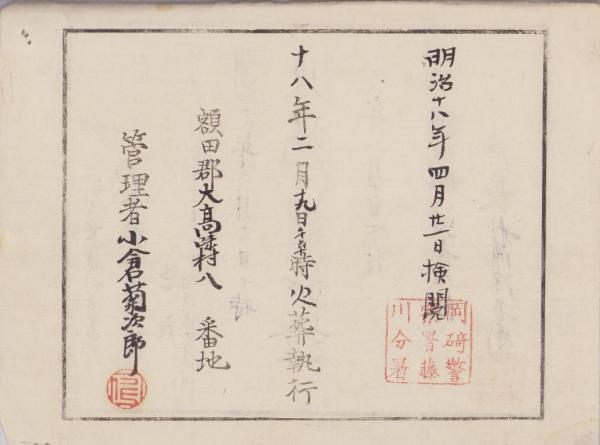 明治十八年四月廿一日検閲
岡碕警
察署藤
川分署
十八年二月十九日午后 時火葬執行
額田郡大高味村八 番地
管理者小倉菊次郎